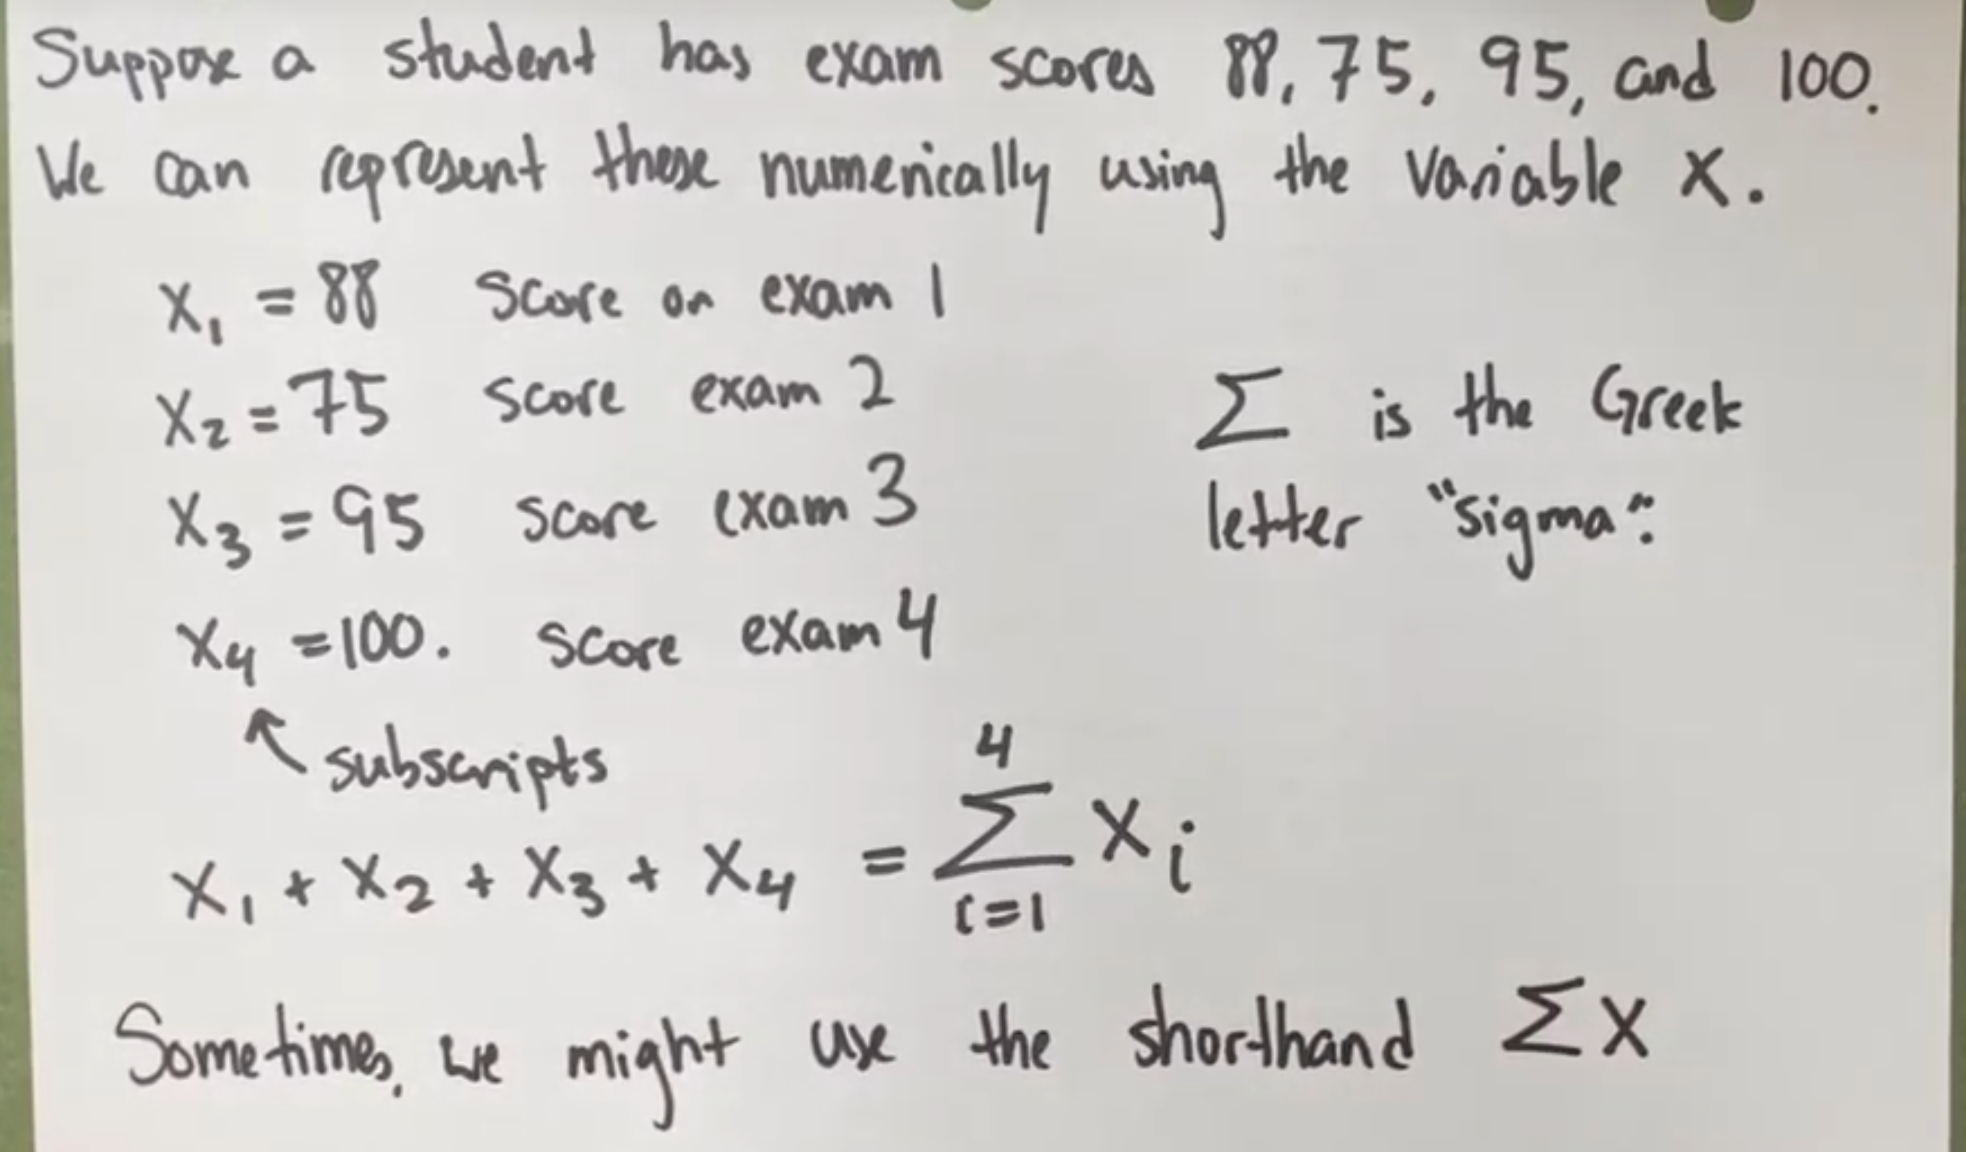 Suppose a student has exam scores 88, 75, 95, and 100.
We can represent these numerically using the variable X.
X₁ = 88 score on exam 1
X₂ = 75 score exam 2
X₃ = 95 score exam 3
X₄ = 100. score exam 4
Σ is the Greek
letter "sigma".
↖ subscripts
X₁ + X₂ + X₃ + X₄ = \sum_{i=1}^{4} X_i
Sometimes, we might use the shorthand ΣX